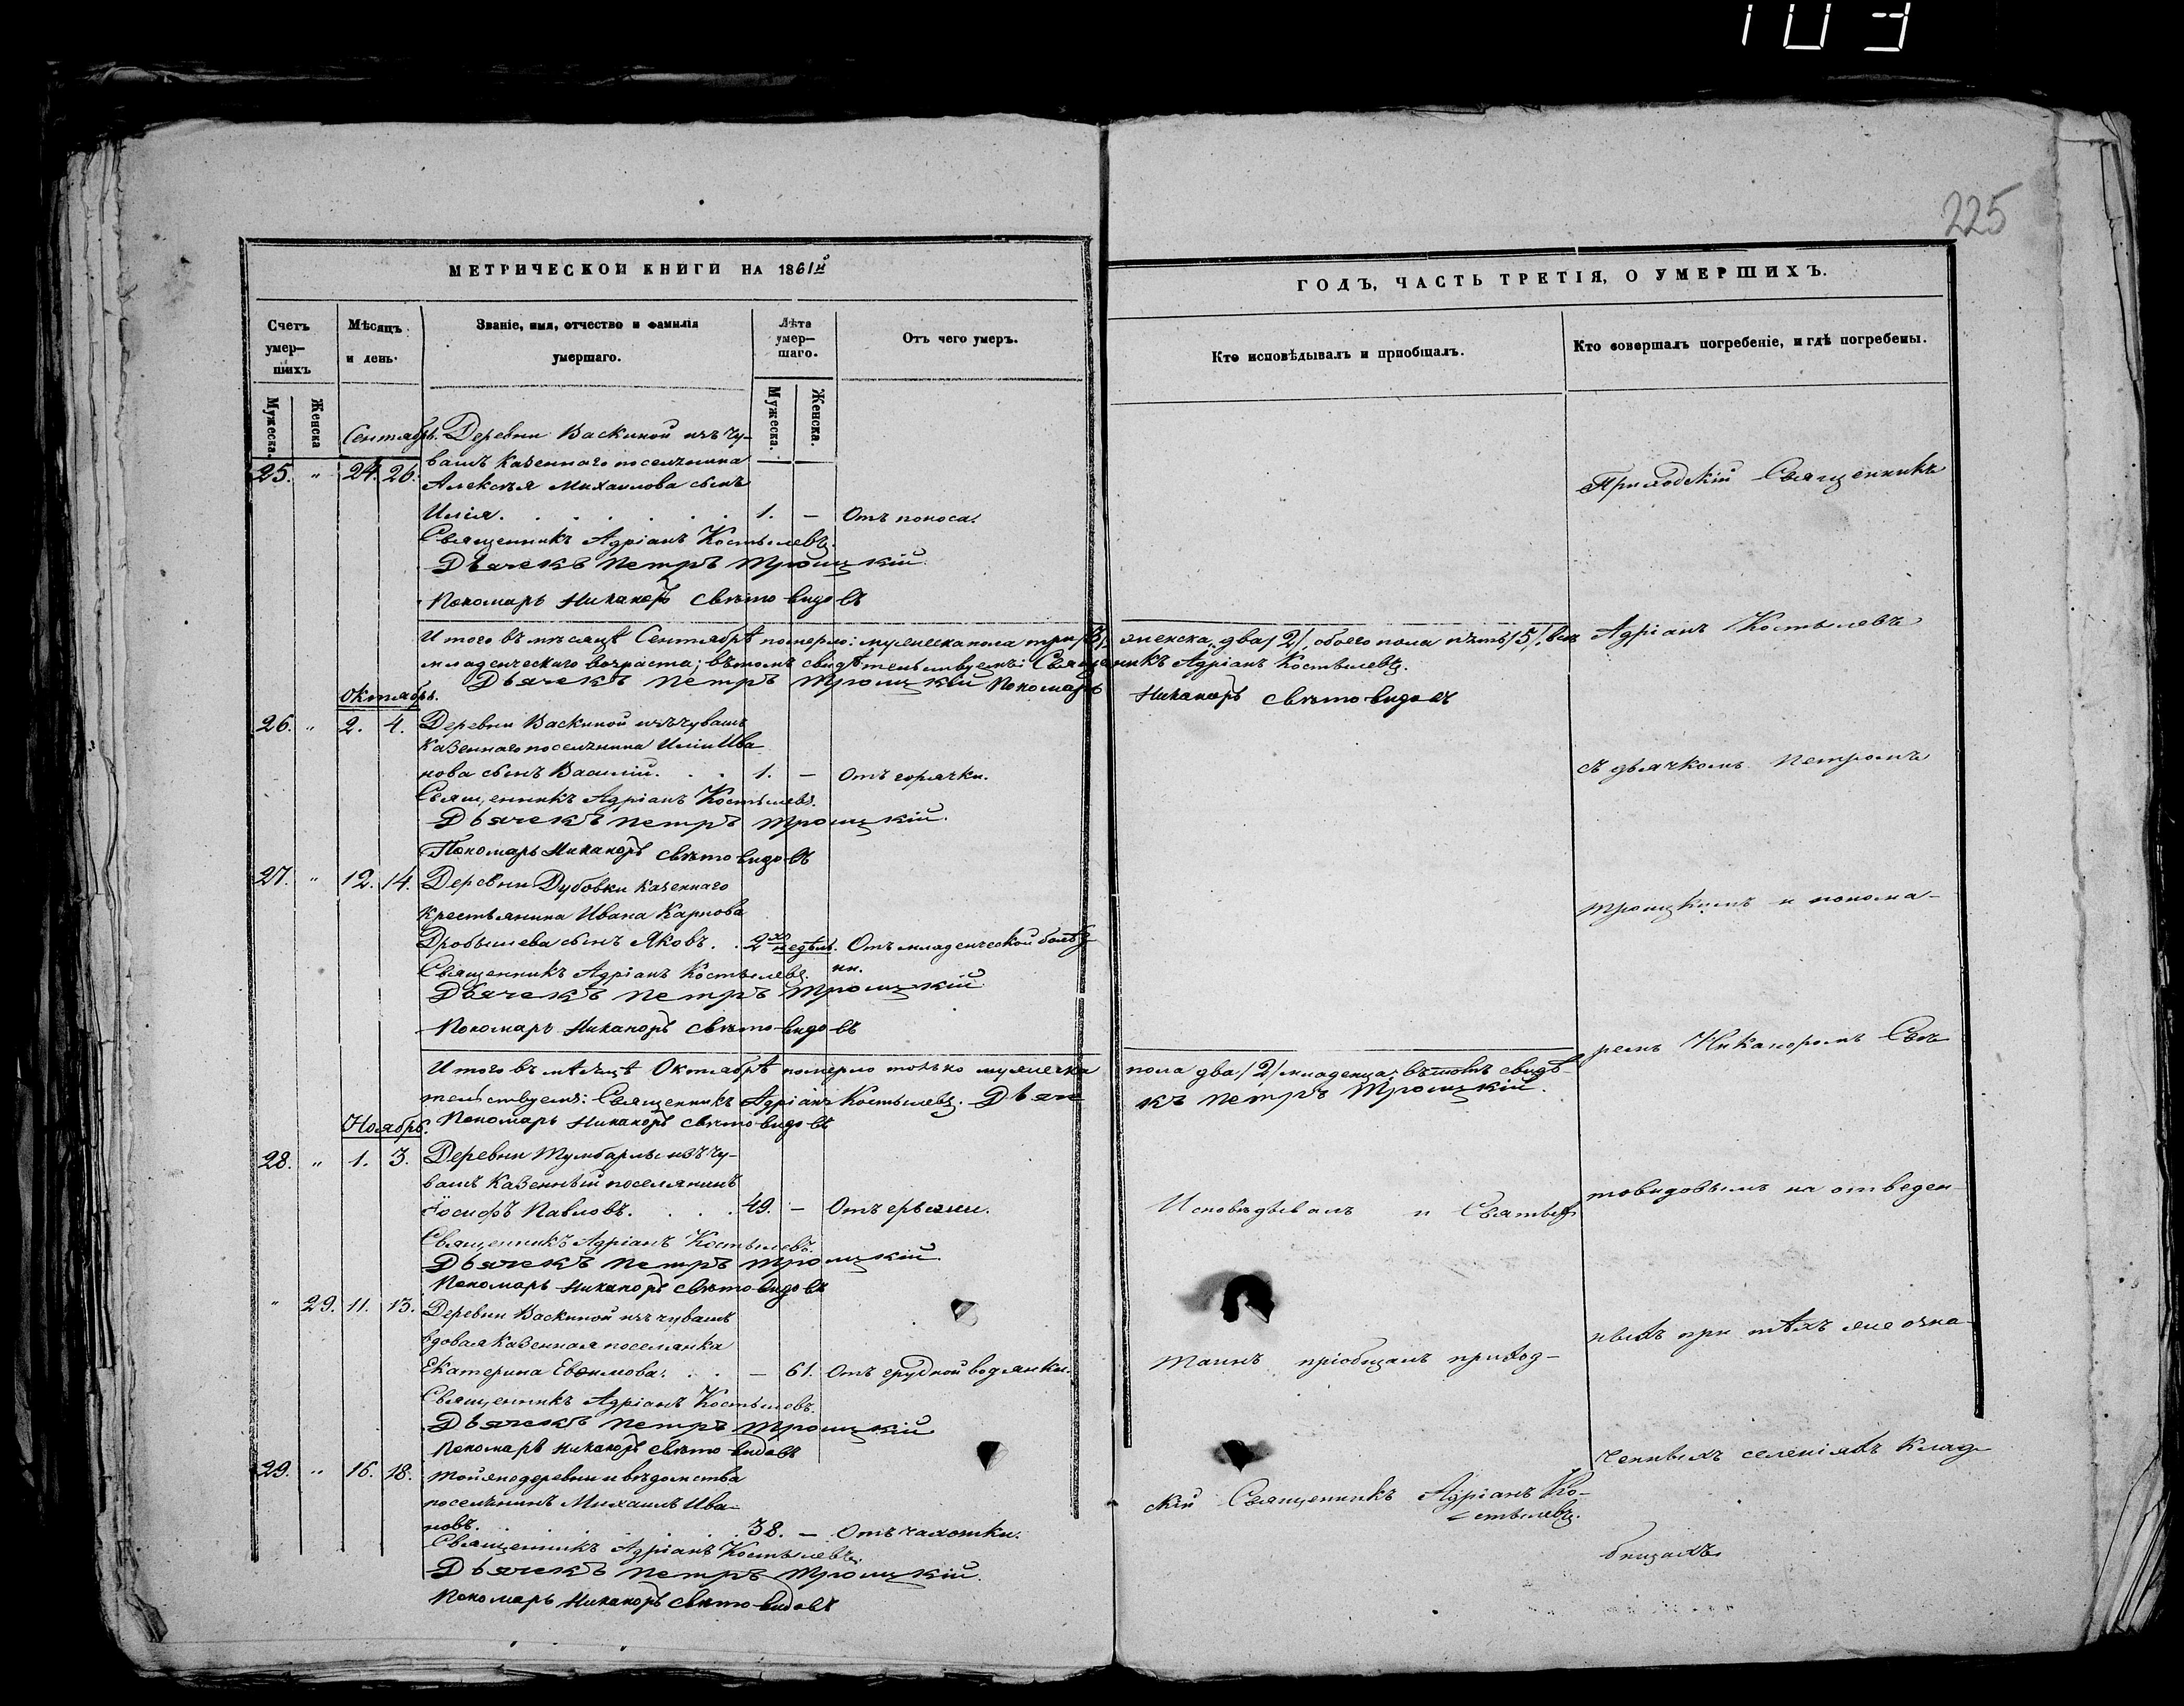 103
225
МЕТРИЧЕСКОЙ КНИГИ НА 1861й
ГОДЪ, ЧАСТЬ ТРЕТІЯ, О УМЕРШИХЪ.
Счетъ умер-
шихъ
Мѣсяцъ
и день.
Званіе, имя, отчество и фамилія
умершаго.
Лѣта
умер-
шаго.
Отъ чего умеръ.
Кто исповѣдывалъ и пріобщалъ.
Кто совершалъ погребеніе, и гдѣ погребены.
Мужеска.
Женска
Мужеска.
Женска.
Сентябрь. Деревни Васкиной изъ чу-
вашъ казеннаго поселянина
25. " 24. 26. Алексѣя Михаилова сынъ
Илія. 1. — Отъ поноса.
Священникъ Адріанъ Костылевъ.
Дьячекъ Петръ Троицкій.
Пономарь Никаноръ Свѣтовидовъ
Итого въ мѣсяцѣ Сентябрѣ померло: мужеска пола три /3/, женска два /2/, обоего пола пять /5/, всѣ
младенческаго возраста; въ томъ свидѣтельствуемъ: Священникъ Адріанъ Костылевъ.
Дьячекъ Петръ Троицкій Пономарь Никаноръ Свѣтовидовъ
Октябрь.
26. " 2. 4. Деревни Васкиной изъ чувашъ
казеннаго поселянина Иліи Ива
нова сынъ Василій. 1. — Отъ горячки.
Священникъ Адріанъ Костылевъ.
Дьячекъ Петръ Троицкій.
Пономарь Никаноръ Свѣтовидовъ
27. " 12. 14. Деревни Дубовки казеннаго
крестьянина Ивана Карпова
Дробышева сынъ Яковъ. 2хъ недѣль. Отъ младенческой болѣз
ни.
Священникъ Адріанъ Костылевъ.
Дьячекъ Петръ Троицкій
Пономарь Никаноръ Свѣтовидовъ
Итого въ мѣсяцѣ Октябрѣ померло только мужеска пола два /2/ младенца; въ томъ свидѣ
тельствуемъ: Священникъ Адріанъ Костылевъ. Дьяче къ Петръ Троицкій.
Пономарь Никаноръ Свѣтовидовъ
Ноябрь.
28. " 1. 3. Деревни Тумбарлы изъ чу-
вашъ казенный поселянинъ
Іосифъ Павловъ. 49. — Отъ грыжи.
Священникъ Адріанъ Костылевъ.
Дьячекъ Петръ Троицкій.
Пономарь Никаноръ Свѣтовидовъ
" 29. 11. 13. Деревни Васкиной изъ чувашъ
вдовая казенная поселянка
Екатерина Евѳимова. — 61. Отъ грудной водянки.
Священникъ Адріанъ Костылевъ.
Дьячекъ Петръ Троицкій
Пономарь Никаноръ Свѣтовидовъ
29. " 16. 18. Той же деревни и вѣдомства
поселянинъ Михаилъ Ива-
новъ. 38. — Отъ чахотки.
Священникъ Адріанъ Костылевъ.
Дьячекъ Петръ Троицкій.
Пономарь Никаноръ Свѣтовидовъ
Исповѣдывалъ и Святыхъ
Таинъ пріобщалъ приход-
скій Священникъ Адріанъ Ко-
стылевъ.
Приходскій Священникъ
Адріанъ Костылевъ
съ дьячкомъ Петромъ
Троицкимъ и понома-
ремъ Никаноромъ Свѣ
товидовымъ на отведен-
ныхъ при тѣхъ же озна-
ченныхъ селеніяхъ клад-
бищахъ